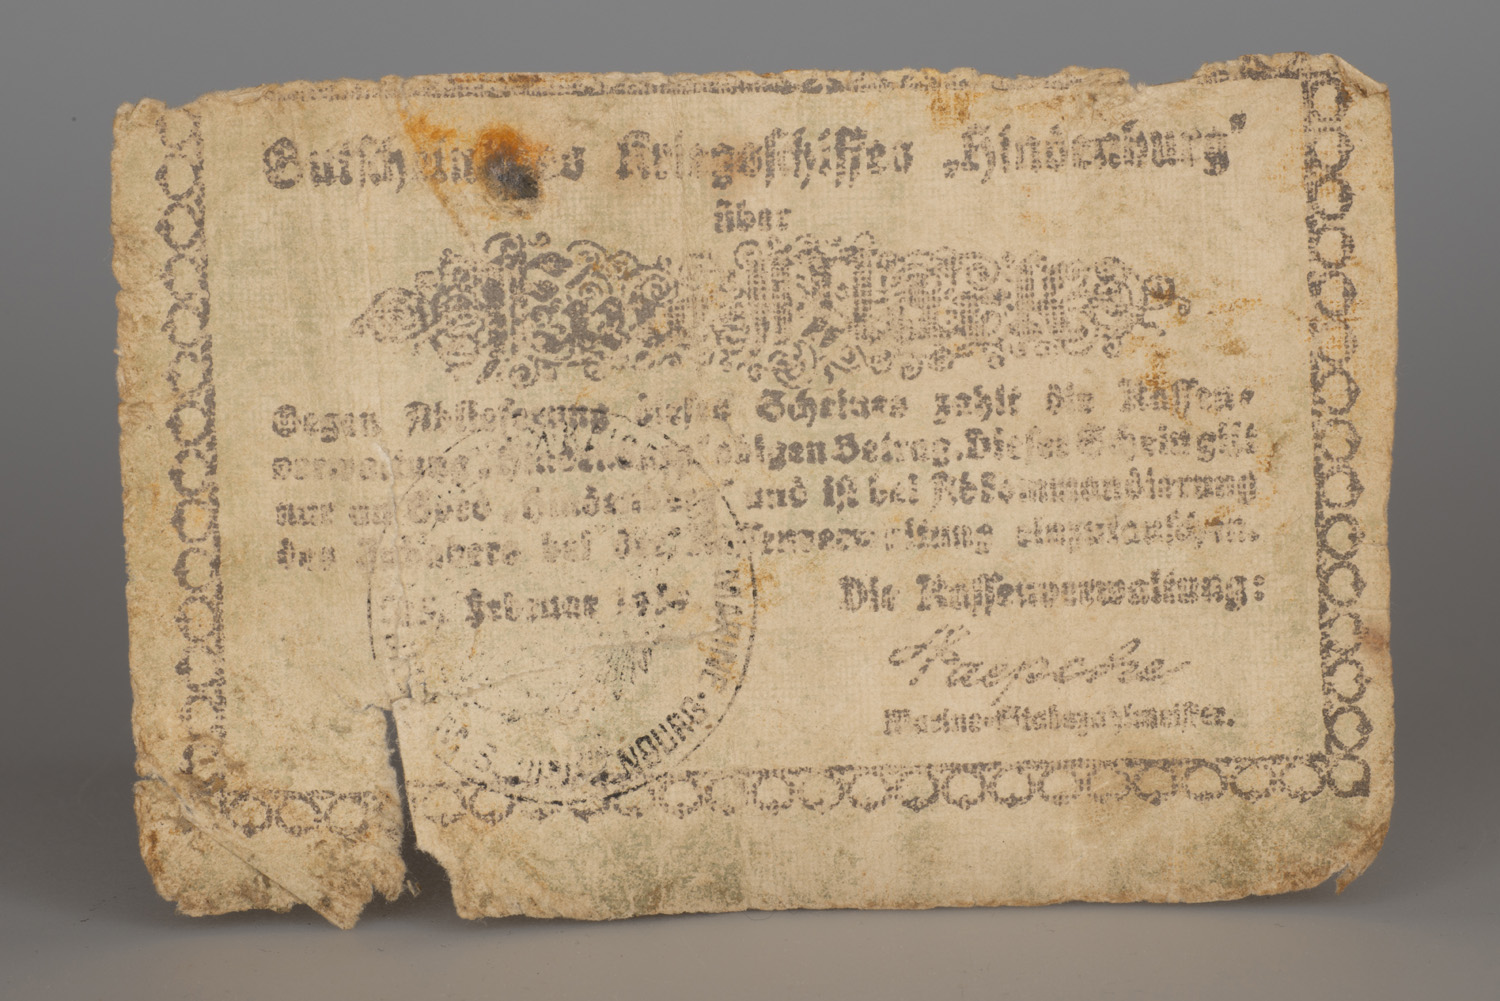 Gutschein des Kriegsschiffes „Hindenburg"
über
Gegen Ablieferung dieses Scheines zahlt die Kassen-
verwaltung „Hindenburg" obigen Betrag. Dieser Schein gilt
nur an Bord „Hindenburg" und ist bei Abkommandierung
des Inhabers bei der Kassenverwaltung einzutauschen.
Februar
Die Kassenverwaltung:
Marine-Stabszahlmeister.
MARINE